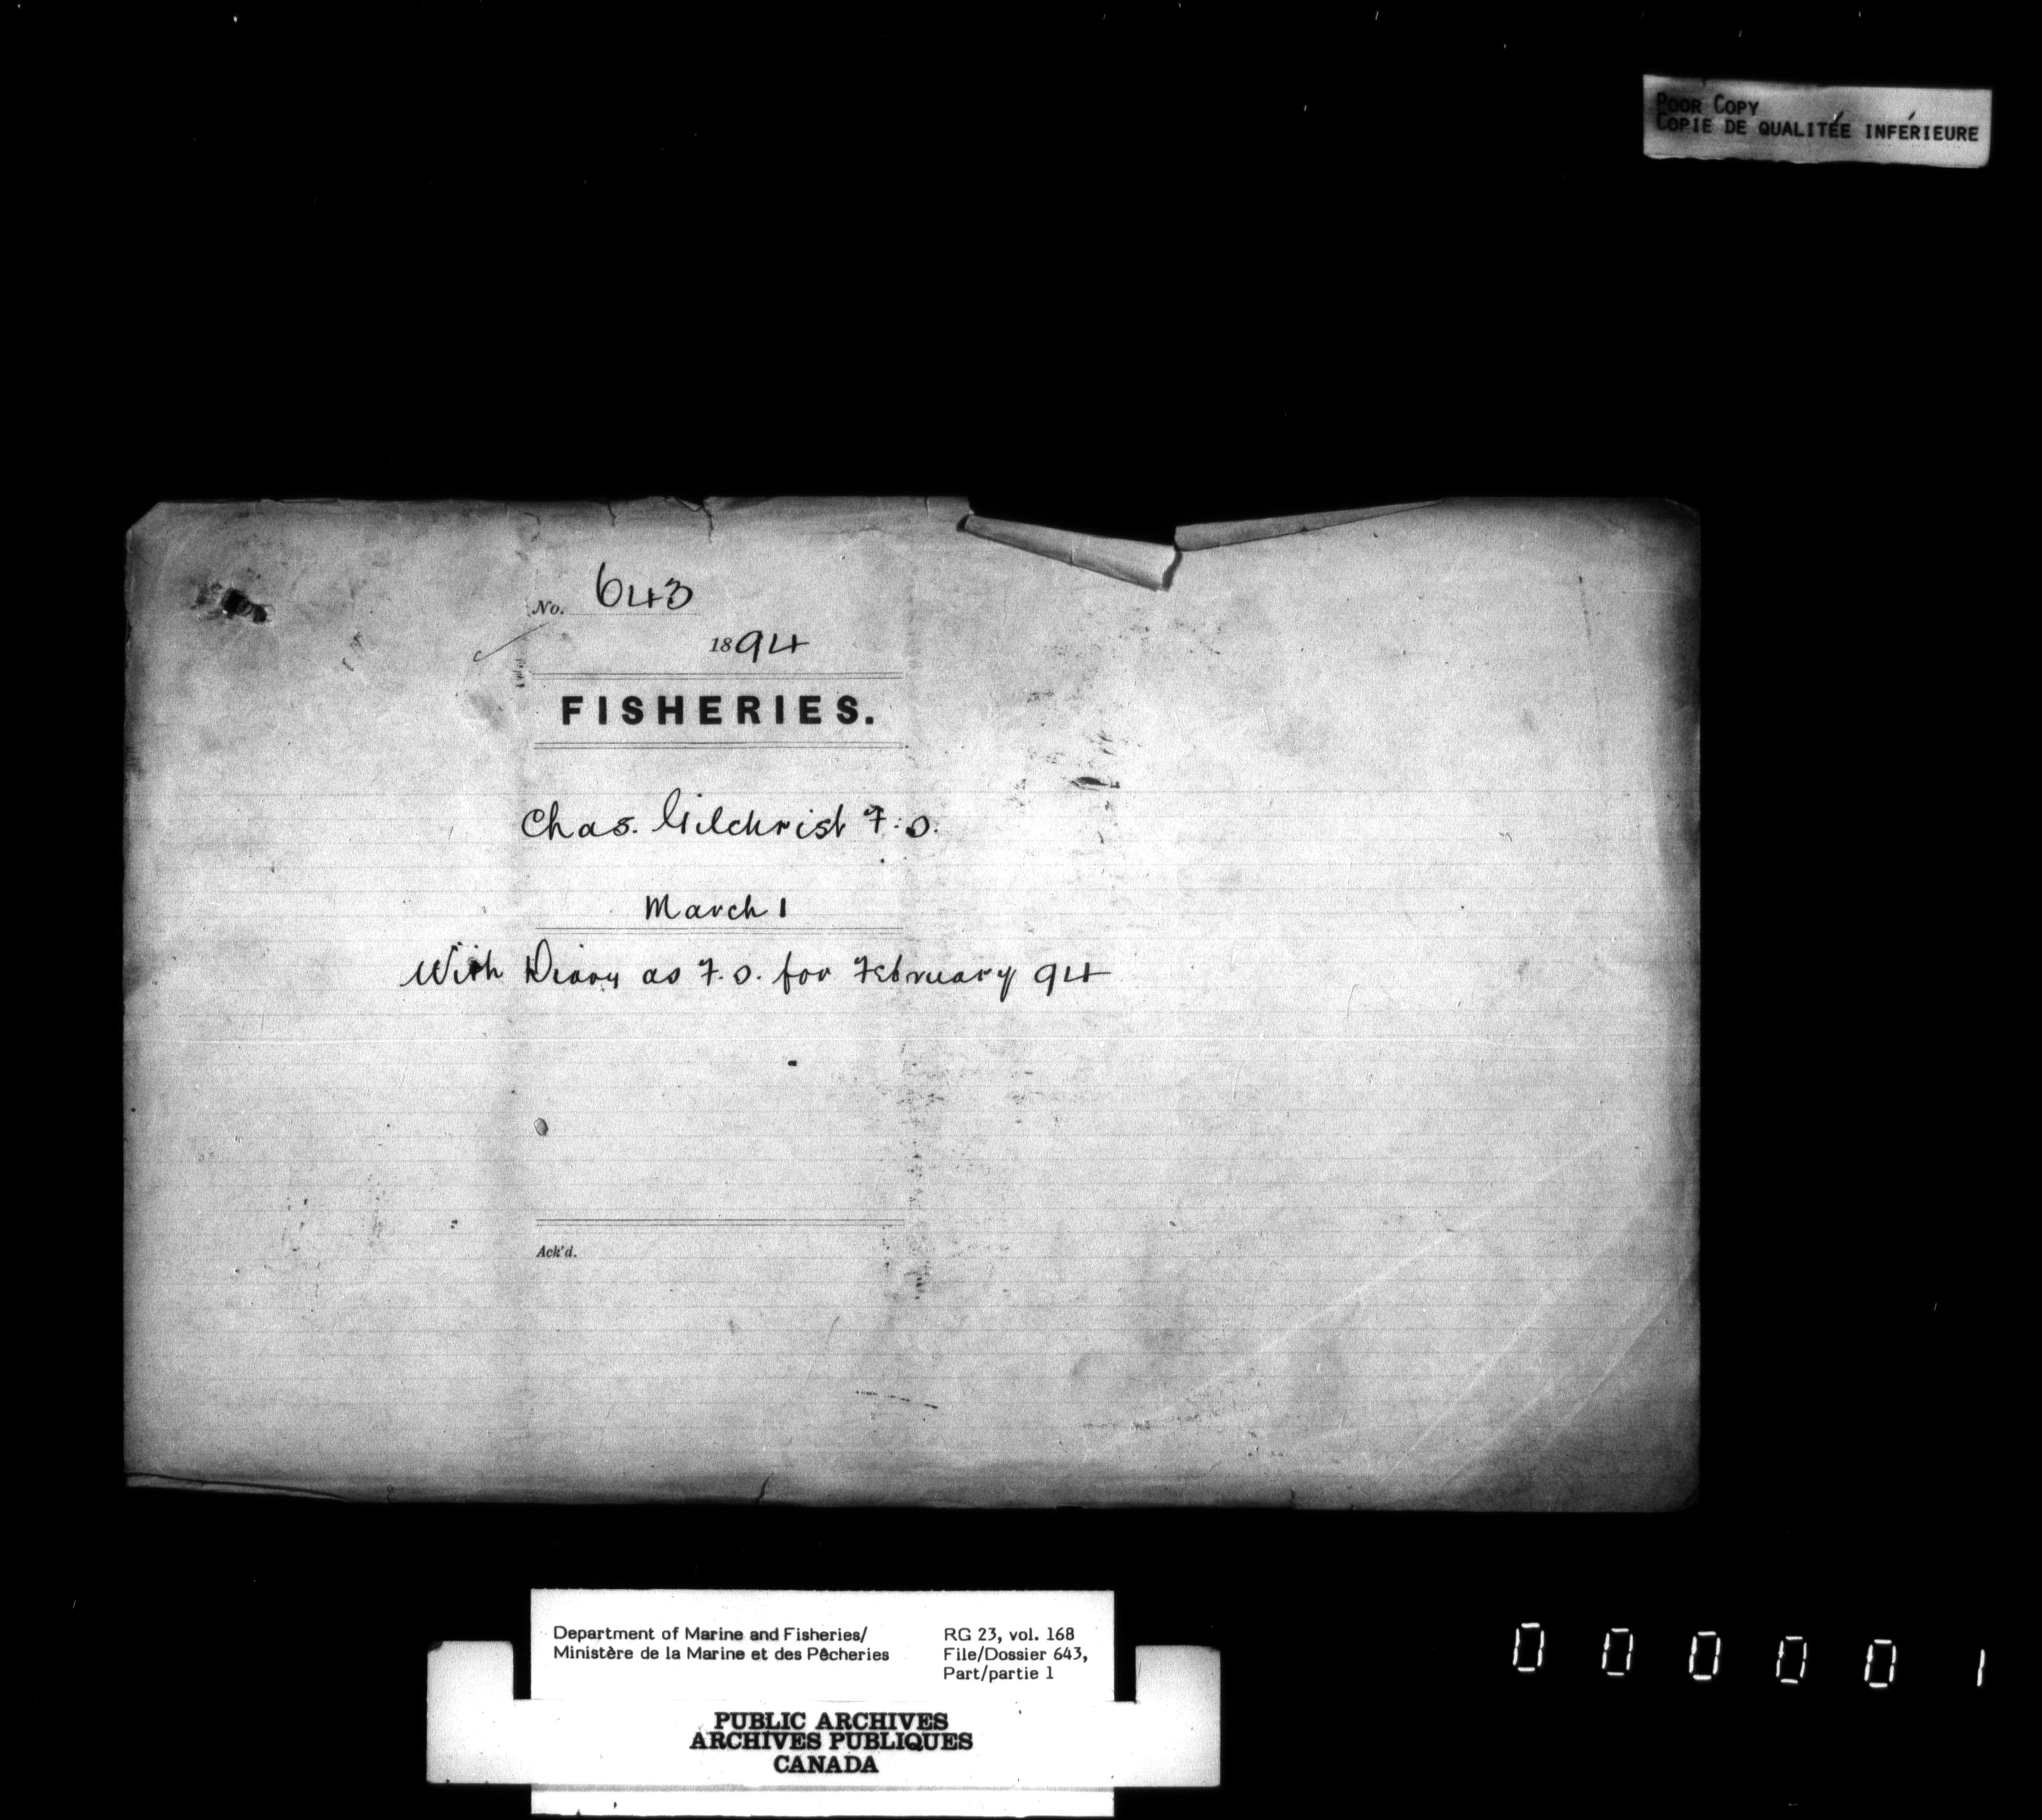 POOR COPY
COPIE DE QUALITÉE INFÉRIEURE
No. 643
1894
FISHERIES.
Chas. Gilchrist F.O.
March 1
With Diary as F.O. for February 94
Ack'd.
Department of Marine and Fisheries/
Ministère de la Marine et des Pêcheries
RG 23, vol. 168
File/Dossier 643,
Part/partie 1
PUBLIC ARCHIVES
ARCHIVES PUBLIQUES
CANADA
000001